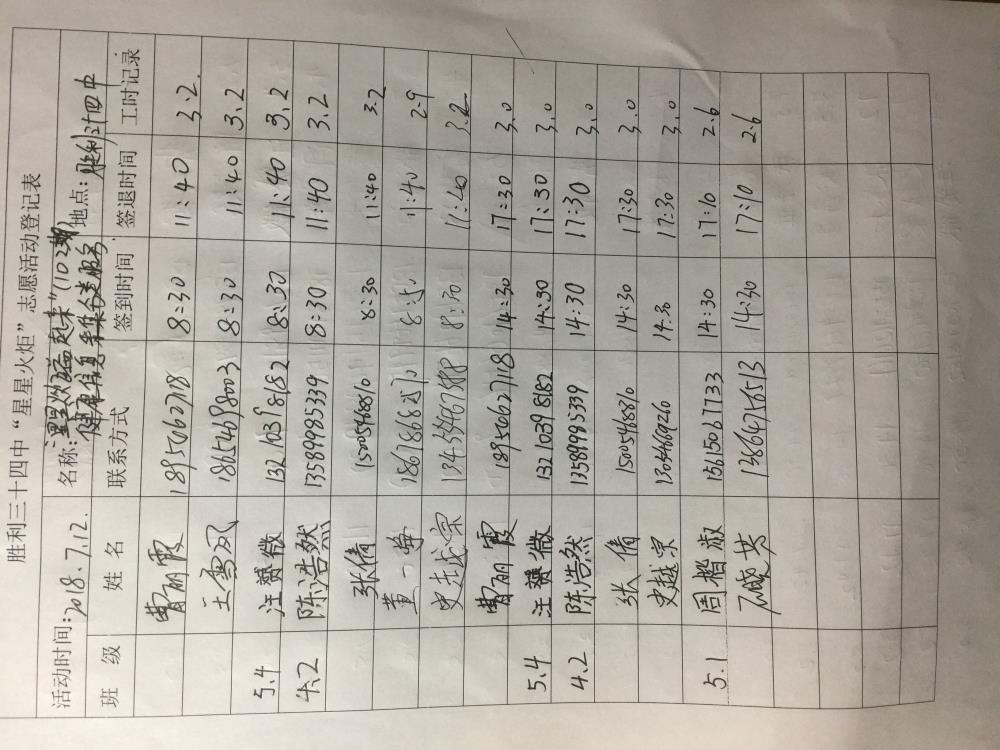 胜利三十四中“星星火炬”志愿活动登记表
活动时间:2018.7.12. 名称:星火益起来"(102期) 健康信息采集分类服务 地点:胜利三十四中
班 级 姓 名 联系方式 签到时间 签退时间 工时记录
曹丽霞 18950627118 8:30 11:40 3.2
王雪凤 18654698003 8:30 11:40 3.2
5.4 汪赟微 13210398182 8:30 11:40 3.2
4.2 陈浩然 13589985339 8:30 11:40 3.2
张倩 15005468810 8:30 11:40 3.2
董一 8:50 11:40 2.9
史越宗 8:30 11:40 3.2
曹丽霞 18950627118 14:30 17:30 3.0
5.4 汪赟微 13210398182 14:30 17:30 3.0
4.2 陈浩然 13589985339 14:30 17:30 3.0
张倩 15005468810 14:30 17:30 3.0
史越宗 14:30 17:30 3.0
5.1 周楷淑 15615067133 14:30 17:10 2.6
14:30 17:10 2.6